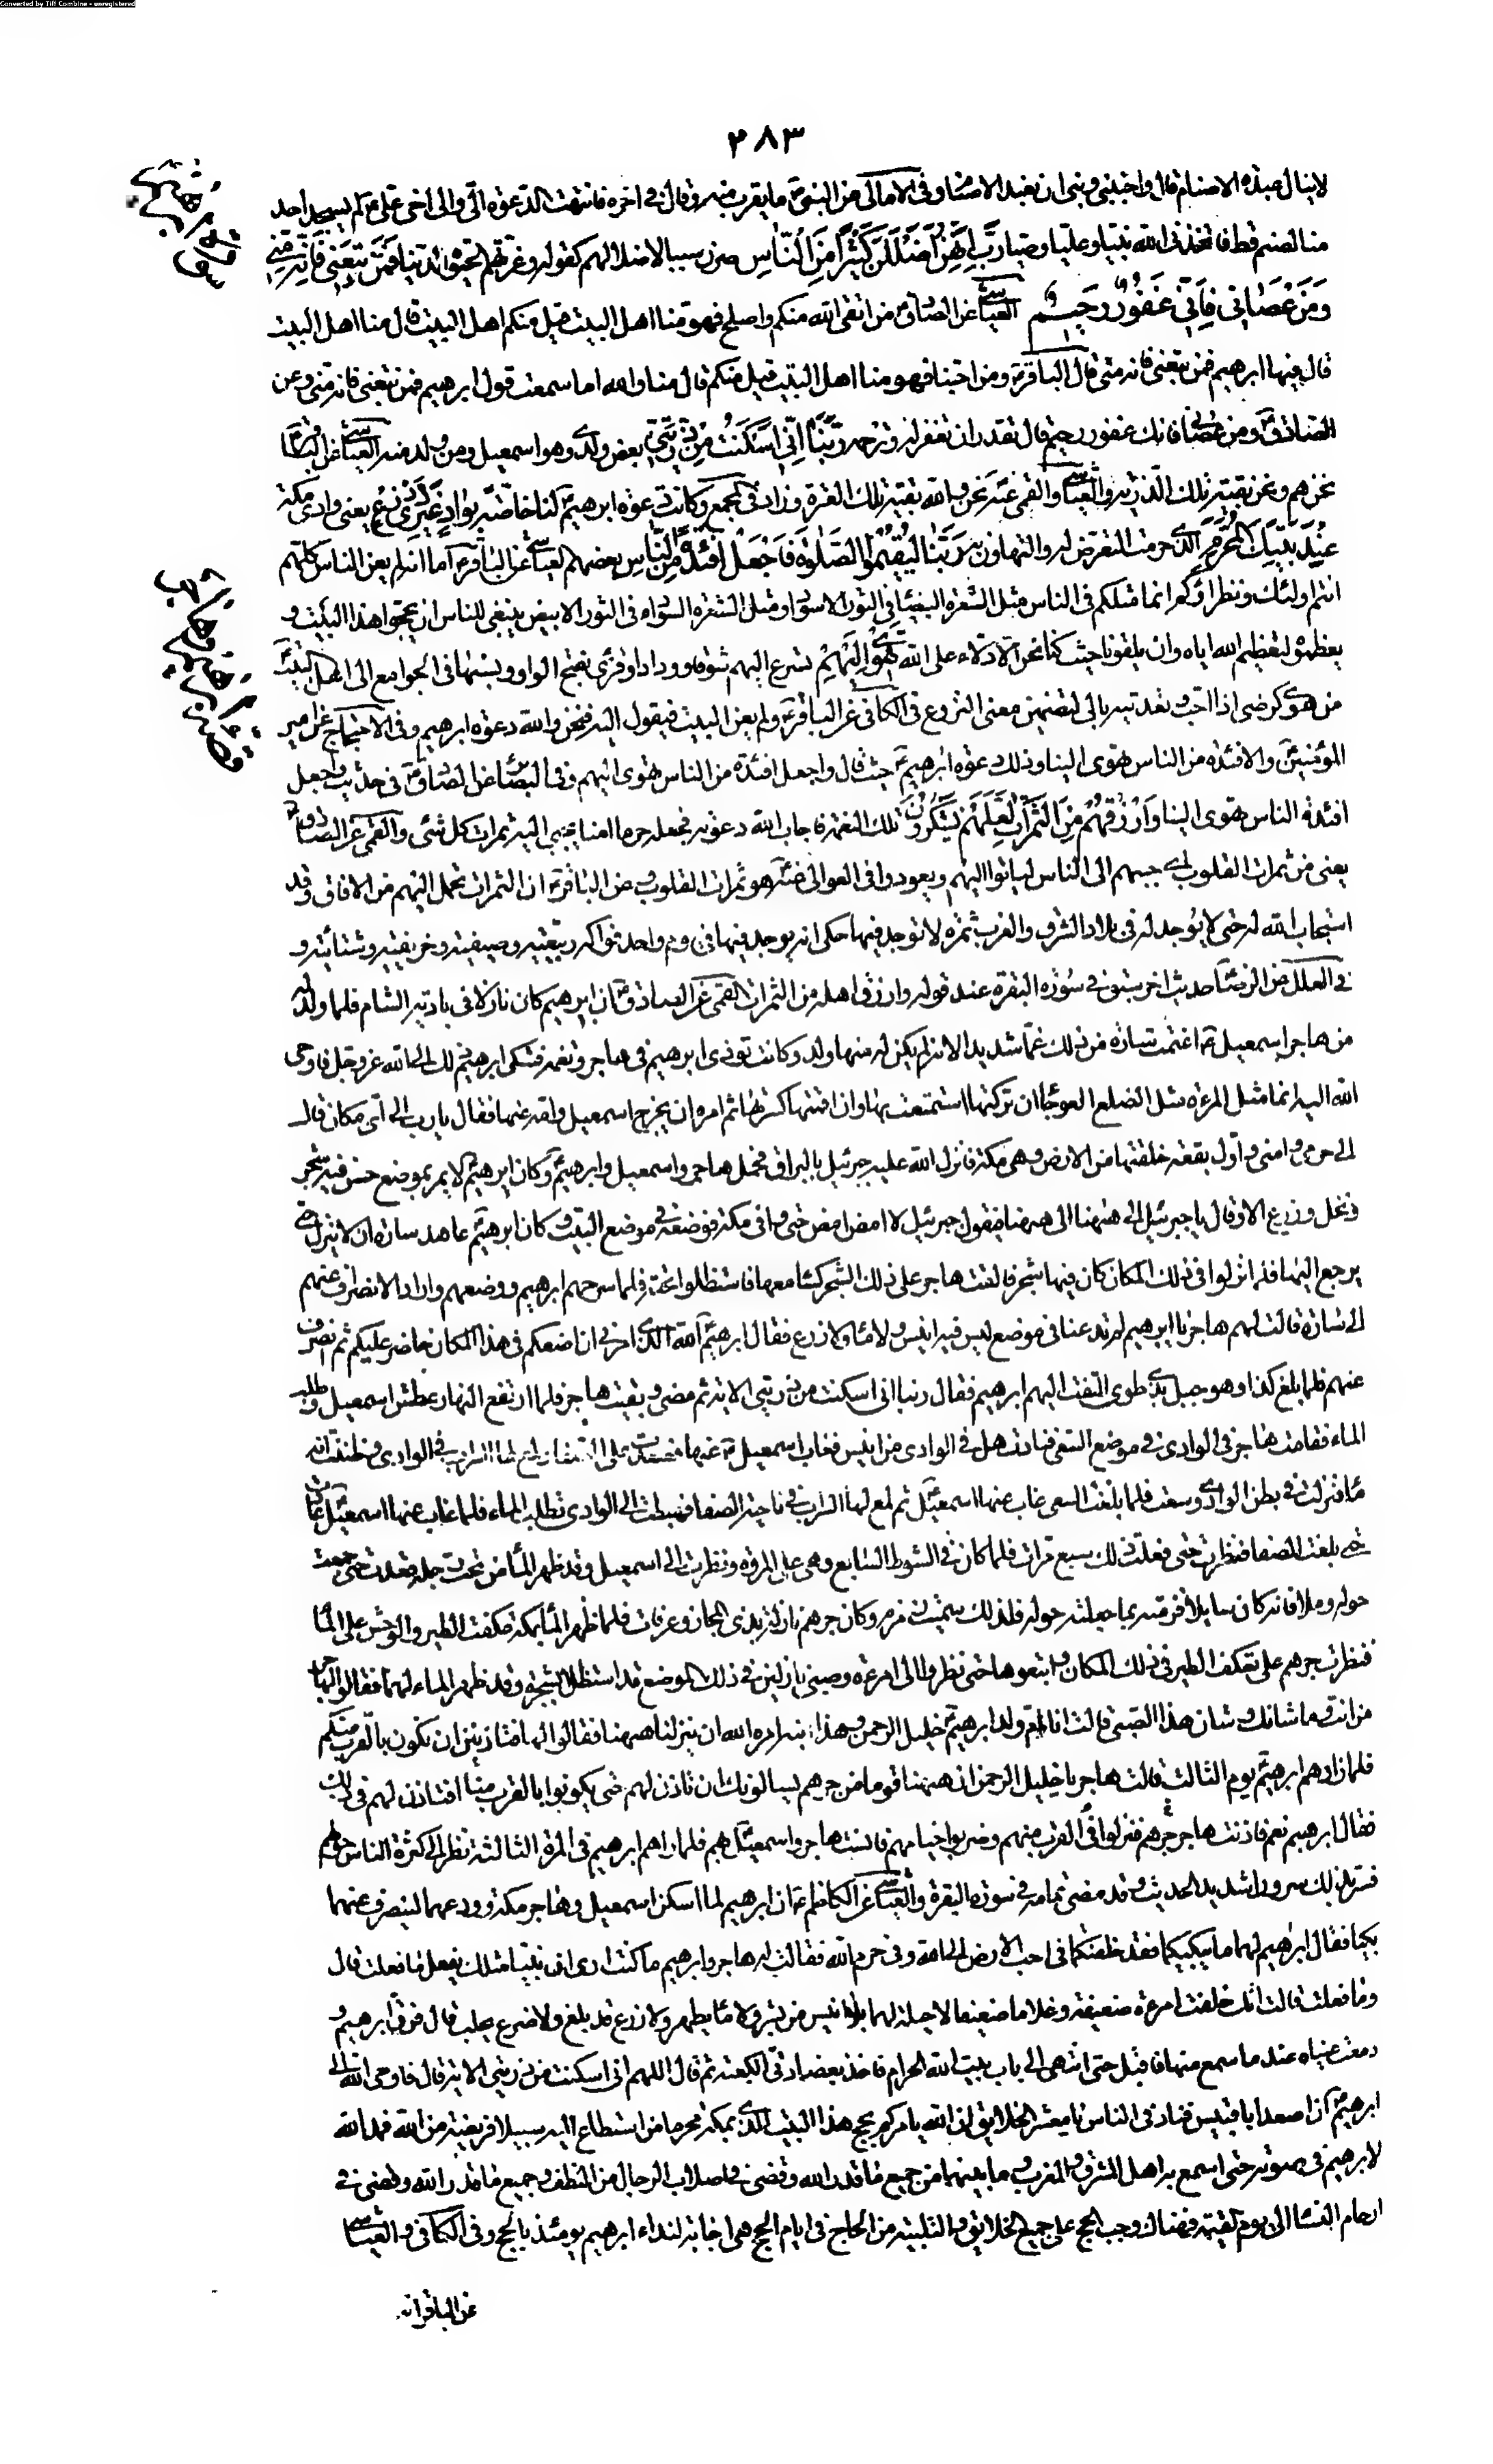 Converted by Tiff Combine - unregistered
٢٨٣
لا ينال عبدة الاصنام قال واجنبنى وبنى ان نعبد الاصنام وفى الامالى عن النبى ص ما يقرب منه وقال فى اخره فانتهت الدعوة الى والى اخى على ع لم يسجد احد
منا لصنم قط فاتخذنى الله نبيا وعليا وصيا رَبِّ اِنَّهُنَّ اَضْلَلْنَ كَثيرًا مِنَ النّاسِ صرن سببا لاضلالهم كقوله وغرتهم الحيوة الدنيا فَمَنْ تَبِعَنى فَاِنَّهُ مِنّى
وَمَنْ عَصانى فَاِنَّكَ غَفُورٌ رَحيمٌ العياشى عن الصادق ع من اتقى الله منكم واصلح فهو منا اهل البيت قيل منكم اهل البيت قال منا اهل البيت
قال فيها ابرهيم فمن تبعنى فانه منى قال الباقر ع ومن احبنا فهو منا اهل البيت قيل منكم قال منا والله اما سمعت قول ابرهيم فمن تبعنى فانه منى وعن
الصادق ع ومن عصانى فانك غفور رحيم قال تقدر ان تغفر له وترحمه رَبَّنا اِنّى اَسْكَنْتُ مِنْ ذُرِّيَّتى بعض ولدى وهو اسمعيل ومن ولد منه العياشى عن الباقر ع
نحن هم ونحن بقية تلك الذرية والعياشى والقمى عنه نحن والله بقية تلك العترة وزاد فى المجمع وكانت دعوة ابرهيم لنا خاصة بِوادٍ غَيْرِ ذى زَرْعٍ يعنى وادى مكة
عِنْدَ بَيْتِكَ الْمُحَرَّمِ الذى حرمت التعرض له والتهاون به رَبَّنا لِيُقيمُوا الصَّلوةَ فَاجْعَلْ اَفْئِدَةً مِنَ النّاسِ بعضهم العياشى عن الباقر ع اما انه لم يعن الناس كلهم
انتم اولئك ونظراؤكم انما مثلكم فى الناس مثل الشعرة البيضاء فى الثور الاسود او مثل الشعرة السوداء فى الثور الابيض ينبغى للناس ان يحجوا هذا البيت و
يعظموه لتعظيم الله اياه وان يلقونا حيث كنا نحن الادلاء على الله تَهْوى اِلَيْهِمْ تسرع اليهم شوقا وودادا وقرئ بفتح الواو ونسبها فى الجوامع الى اهل البيت
من هوى كرضى اذا احب وتعديته بالى لتضمين معنى النزوع فى الكافى عن الباقر ع ولم يعن البيت فيقول اليه فنحن والله دعوة ابرهيم وفى الاحتجاج عن امير
المؤمنين ع والافئدة من الناس تهوى الينا وذلك دعوة ابرهيم ع حيث قال واجعل افئدة من الناس تهوى اليهم وفى البصائر عن الصادق ع فى حديث واجعل
افئدة الناس تهوى الينا وَارْزُقْهُمْ مِنَ الثَّمَراتِ لَعَلَّهُمْ يَشْكُرُونَ تلك النعمة فاجاب الله دعوته فجعله حرما امنا يجبى اليه ثمرات كل شئ والقمى عن الصادق ع
يعنى من ثمرات القلوب اى حببهم الى الناس لياتوا اليهم ويعودوا فى العوالى عنه ع هو ثمرات القلوب وعن الباقر ع ان الثمرات تحمل اليهم من الافاق وقد
استجاب الله له حتى لا يوجد له فى بلاد الشرق والغرب ثمرة لا توجد فيها حكى انه يوجد فيها فى يوم واحد فواكه ربيعية وصيفية وخريفية وشتائية و
فى العلل عن الرضا ع حديث اخر سبق فى سورة البقرة عند قوله وارزق اهله من الثمرات القمى عن الصادق ع ان ابرهيم كان نازلا فى بادية الشام فلما ولد له
من هاجر اسمعيل ع اغتمت سارة من ذلك غما شديدا لانه لم يكن له منها ولد وكانت توذى ابرهيم فى هاجر وتغمه فشكى ابرهيم ذلك الى الله عز وجل فاوحى
الله اليه انما مثل المرءة مثل الضلع العوجاء ان تركتها استمتعت بها وان اقمتها كسرتها ثم امره ان يخرج اسمعيل وامه عنها فقال يا رب الى اى مكان قال
الى حرمى وامنى واول بقعة خلقتها من الارض وهى مكة فانزل الله عليه جبرئيل بالبراق فحمل هاجر واسمعيل وابرهيم ع وكان ابرهيم لا يمر بموضع حسن فيه شجر
ونخل وزرع الا وقال يا جبرئيل الى ههنا الى ههنا فيقول جبرئيل لا امض امض حتى وافى مكة فوضعه فى موضع البيت وكان ابرهيم ع عاهد سارة ان لا ينزل حتى
يرجع اليها فلما نزلوا فى ذلك المكان كان فيها شجر فالقت هاجر على ذلك الشجر كساء معها فاستظلوا تحته فلما سرحهم ابرهيم ووضعهم واراد الانصراف عنهم
الى سارة قالت لهم هاجر يا ابرهيم لم تدعنا فى موضع ليس فيه انيس ولا ماء ولا زرع فقال ابرهيم ع الله الذى امرنى ان اضعكم فى هذا المكان حاضر عليكم ثم انصرف
عنهم فلما بلغ كدا وهو جبل بذى طوى التفت اليهم ابرهيم فقال ربنا انى اسكنت من ذريتى الاية ثم مضى وبقيت هاجر فلما ارتفع النهار عطش اسمعيل وطلب
الماء فقامت هاجر فى الوادى فى موضع السعى فنادت هل فى الوادى من انيس فغاب اسمعيل ع عنها فصعدت على الصفا ولمع لها السراب فى الوادى وظنت انه
ماء فنزلت فى بطن الوادى وسعت فلما بلغت المسعى غاب عنها اسمعيل ثم لمع لها السراب فى ناحية الصفا فهبطت الى الوادى تطلب الماء فلما غاب عنها اسمعيل عادت
حتى بلغت الصفا فنظرت حتى فعلت ذلك سبع مرات فلما كان فى الشوط السابع وهى على المروة ونظرت الى اسمعيل وقد ظهر الماء من تحت رجله فعدت حتى جمعت
حوله رملا فانه كان سايلا فزمته بما جعلته حوله فلذلك سميت زمزم وكان جرهم نازلة بذى المجاز وعرفات فلما ظهر الماء بمكة عكفت الطير والوحش على الماء
فنظرت جرهم على تعكف الطير فى ذلك المكان واتبعوها حتى نظروا الى امرءة وصبى نازلين فى ذلك الموضع قد استظلا بشجرة وقد ظهر الماء لهما فقالوا لهاجر
من انت وما شانك وشان هذا الصبى قالت انا ام ولد ابرهيم خليل الرحمن وهذا ابنه امره الله ان ينزلنا ههنا فقالوا لها فتاذنين ان نكون بالقرب منكم
فلما زارهم ابرهيم ع يوم الثالث قالت هاجر يا خليل الرحمن ان ههنا قوما من جرهم يسالونك ان تاذن لهم حتى يكونوا بالقرب منا افتاذن لهم فى ذلك
فقال ابرهيم نعم فاذنت هاجر جرهم فنزلوا فى القرب منهم وضربوا خيامهم فانست هاجر واسمعيل بهم فلما راهم ابرهيم فى المرة الثالثة نظر الى كثرة الناس حولهم
فسر بذلك سرورا شديدا الحديث وقد مضى تمامه فى سورة البقرة والعياشى عن الكاظم ع ان ابرهيم لما اسكن اسمعيل وهاجر مكة وودعهما لينصرف عنهما
بكيا فقال ابرهيم لهما ما يبكيكما فقد خلفتكما فى احب الارض الى الله وفى حرم الله فقالت له هاجر يا ابرهيم ما كنت ارى ان نبيا مثلك يفعل ما فعلت قال
وما فعلت قالت انك خلفت امرءة ضعيفة وغلاما ضعيفا لا حيلة لهما بلا انيس من بشر ولا ماء يظهر ولا زرع قد بلغ ولا ضرع يحلب قال فرق ابرهيم و
دمعت عيناه عند ما سمع منها فاقبل حتى انتهى الى باب بيت الله الحرام فاخذ بعضادتى الكعبة ثم قال اللهم انى اسكنت من ذريتى الاية قال فاوحى الله الى
ابرهيم ع ان اصعد ابا قبيس فناد فى الناس يا معشر الخلايق ان الله يامركم بحج هذا البيت الذى بمكة محرما من استطاع اليه سبيلا فريضة من الله فمد الله
لابرهيم فى صوته حتى اسمع به اهل المشرق والمغرب وما بينهما من جميع ما قدر الله وقضى فى اصلاب الرجال من النطف وجميع ما قدر الله وقضى فى
ارحام النساء الى يوم القيمة فهناك وجب الحج على جميع الخلائق والتلبية من الحاج فى ايام الحج هى اجابة لنداء ابرهيم يومئذ بالحج وفى الكافى والعياشى
عن الباقر انه